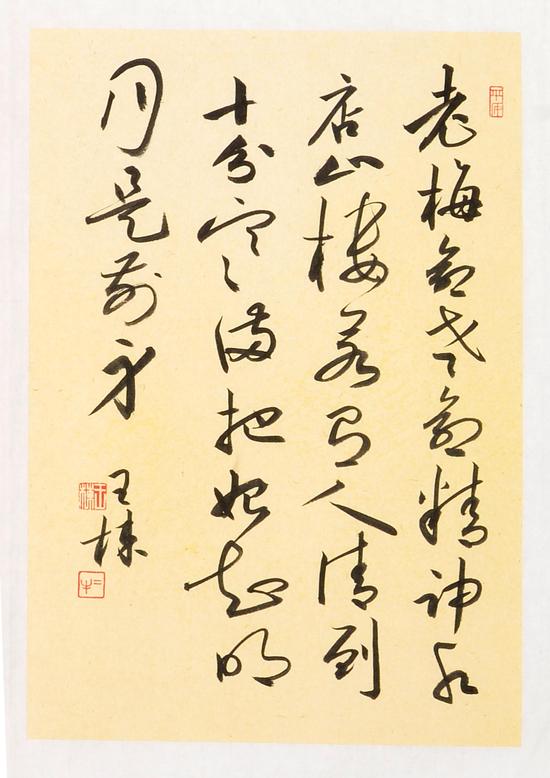 老梅愈老愈精神水
店山楼若有人清到
十分寒满把始知明
月是前身
王